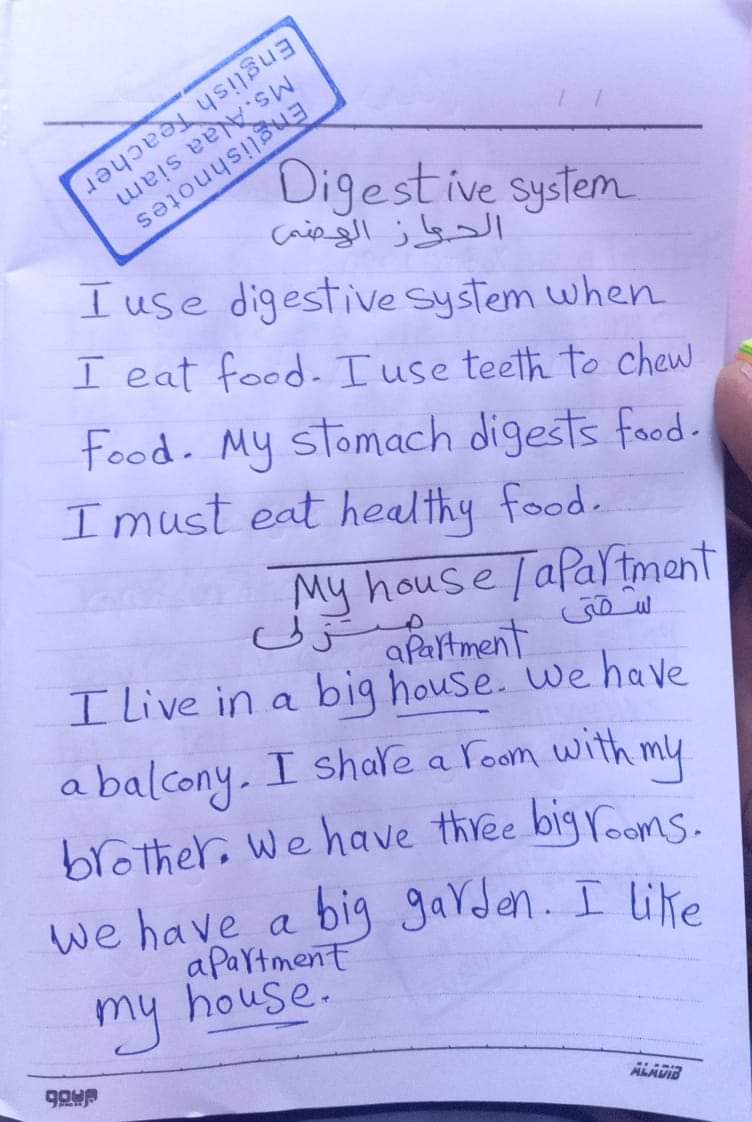 Englishnotes
Ms.Alaa siam
English Teacher
/ /
Digestive system
الجهاز الهضمى
I use digestive system when
I eat food. I use teeth to chew
food. My stomach digests food.
I must eat healthy food.
My house / apartment
منزلى شقتى
apartment
I Live in a big house. We have
a balcony. I share a room with my
brother. We have three big rooms.
We have a big garden. I like
apartment
my house.
ALADIB